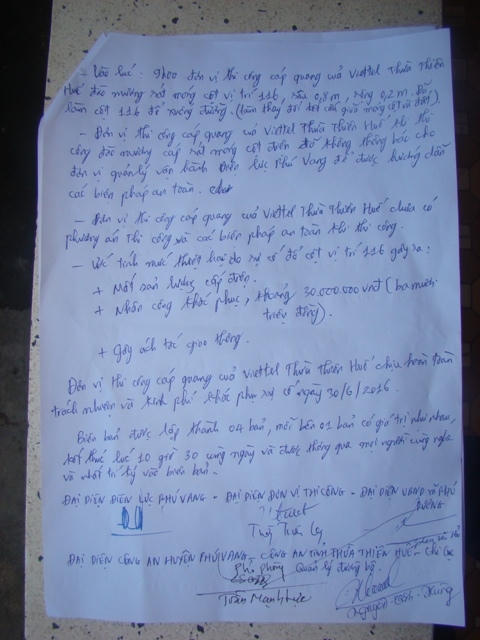 - Vào lúc: 9h00 đơn vị thi công cáp quang của Viettel Thừa Thiên
Huế đào mương sát móng cột vị trí 116, sâu 0,8m, rộng 0,2m. Đã
làm cột 116 đổ xuống đường. (làm thay đổi kết cấu giữa móng cột và đất).
- Đơn vị thi công cáp quang của Viettel Thừa Thiên Huế khi thi
công đào mương cáp sát móng cột điện đã không thông báo cho
đơn vị quản lý vận hành Điện lực Phú Vang để được hướng dẫn
các biện pháp an toàn.
- Đơn vị thi công cáp quang của Viettel Thừa Thiên Huế chưa có
phương án thi công và các biện pháp an toàn khi thi công.
- Ước tính mức thiệt hại do sự cố đổ cột vị trí 116 gây ra:
+ Mất sản lượng cấp điện.
+ Nhân công khắc phục, khoảng 30.000.000 vnđ (ba mươi
triệu đồng).
+ Gây ách tắc giao thông.
Đơn vị thi công cáp quang của Viettel Thừa Thiên Huế chịu hoàn toàn
trách nhiệm và kinh phí khắc phục sự cố ngày 30/6/2016.
Biên bản được lập thành 04 bản, mỗi bên 01 bản có giá trị như nhau,
kết thúc lúc 10 giờ 30 cùng ngày và được thông qua mọi người cùng nghe
và nhất trí ký vào biên bản.
ĐẠI DIỆN ĐIỆN LỰC PHÚ VANG - ĐẠI DIỆN ĐƠN VỊ THI CÔNG - ĐẠI DIỆN UBND XÃ PHÚ
DƯƠNG
ĐẠI DIỆN CÔNG AN HUYỆN PHÚ VANG - CÔNG AN TỈNH THỪA THIÊN HUẾ - Chi Cục
Phó phòng Quản lý đường bộ.
Trần Mạnh